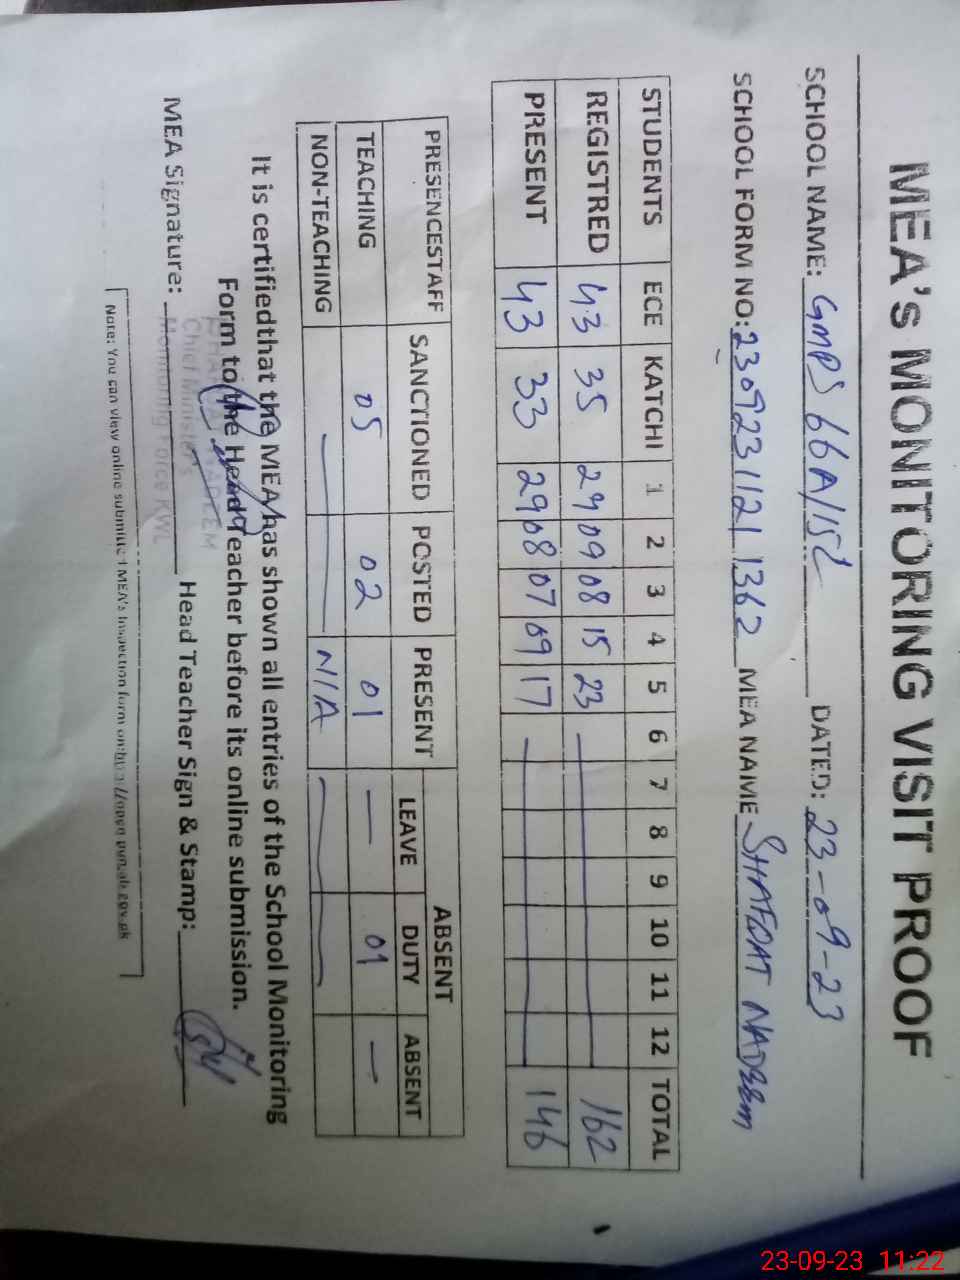 MEA's MONITORING VISIT PROOF
SCHOOL NAME: GMPS 66A/15L DATED: 23-09-23
SCHOOL FORM NO: 2309231121 1362 MEA NAME SHAFQAT NADEEM
STUDENTS ECE KATCHI 1 2 3 4 5 6 7 8 9 10 11 12 TOTAL
REGISTRED 43 35 29 09 08 15 23 162
PRESENT 43 33 29 08 07 09 17 146
PRESENCESTAFF SANCTIONED POSTED PRESENT ABSENT
LEAVE DUTY ABSENT
TEACHING 05 02 01 — 01 —
NON-TEACHING N/A
It is certifiedthat the MEA has shown all entries of the School Monitoring
Form to the Head Teacher before its online submission.
MEA Signature: Head Teacher Sign & Stamp:
NADEEM
Chief Minister's
Monitoring Force KWL
Note: You can view online submitted MEA's Inspection form on:http://open.punjab.gov.pk
23-09-23 11:22